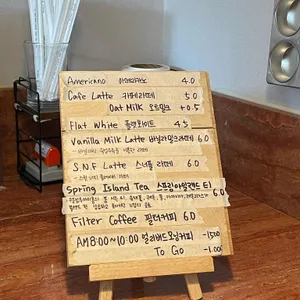 Americano 아메리카노 4.0
Cafe Latte 카페라떼 5.0
Oat Milk 오트밀크 +0.5
Flat White 플랫화이트 4.5
Vanilla Milk Latte 바닐라밀크라떼 6.0
S.N.F Latte 스너플 라떼 6.0
Spring Island Tea 스프링아일랜드 티 6.0
Filter Coffee 필터커피 6.0
AM 8:00~10:00 얼리버드모닝커피 -1500
To Go -1.000